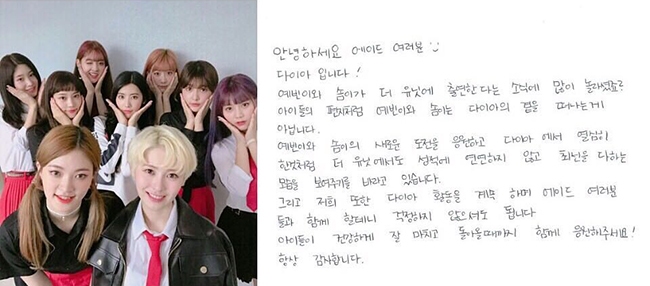 안녕하세요 에이드 여러분 :)
다이아 입니다!
예빈이와 솜이가 더 유닛에 출연한다는 소식에 많이 놀라셨죠?
아이들의 편지처럼 예빈이와 솜이는 다이아의 곁을 떠나는게
아닙니다.
예빈이와 솜이의 새로운 도전을 응원하고 다이아에서 열심히
한것처럼 더 유닛에서도 성적에 연연하지 않고 최선을 다하는
모습을 보여주기를 바라고 있습니다.
그리고 저희 또한 다이아 활동을 계속 하며 에이드 여러분
들과 함께 할테니 걱정하지 않으셔도 됩니다
아이들이 건강하게 잘 마치고 돌아올때까지 함께 응원해주세요!
항상 감사합니다.